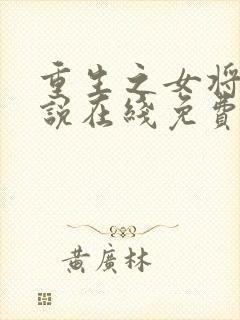 重生之女将
說在綫免費
黃廣林